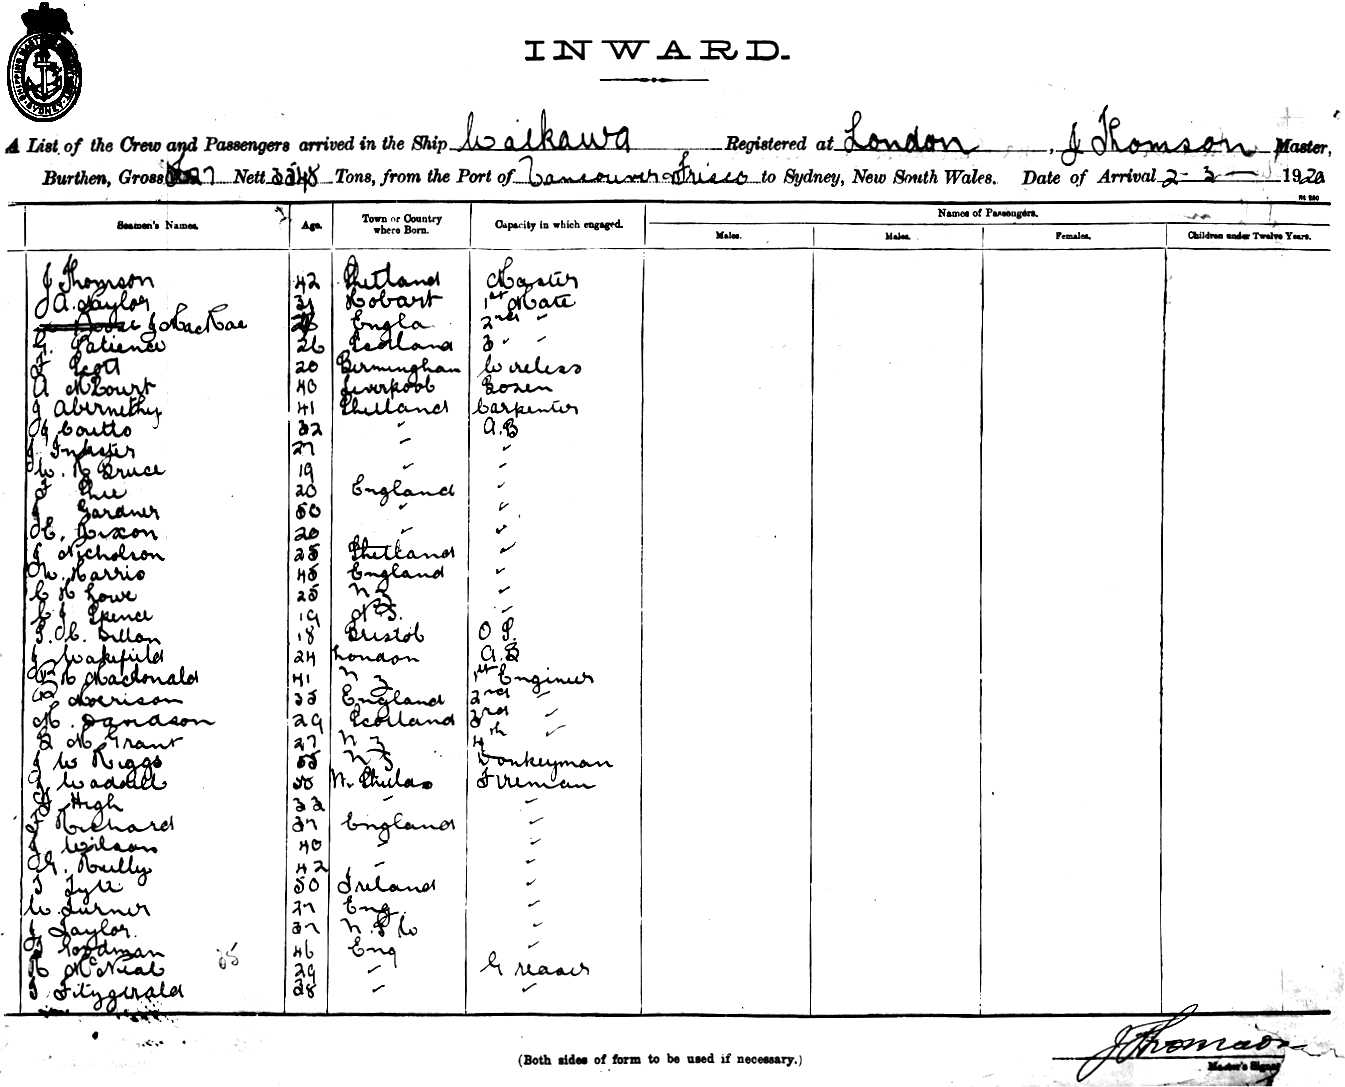 INWARD.
A List of the Crew and Passengers arrived in the Ship Waikawa Registered at London, J Thomson Master,
Burthen, Gross Nett 3348 Tons, from the Port of Vancouver & Frisco to Sydney, New South Wales. Date of Arrival 2-3- 1920
Names of Passengers.
Seamen's Names. Age. Town or Country where Born. Capacity in which engaged. Males. Males. Females. Children under Twelve Years.
J Thomson 42 Shetland Master
J A. Taylor 31 Hobart 1st Mate
J MacRae Engla 2nd "
G. Patience 26 Scotland 3 " "
F Scott 20 Birmingham Wireless
A McCourt 40 Liverpool Bosen
J Abernethy 41 Shetland Carpenter
J Coutts 32 " A.B
J Inkster 27 " "
W. R Bruce 19 " "
F 20 England "
J Gardner 50 " "
H. Dixon 20 " "
J Nicholson 25 Shetland "
W. Harris 45 England "
C H Lowe 25 N Z "
C J Spence 19 N.Z. "
T. H. Dillon 18 Bristol O S.
J Wakefield 24 London A.B
R Macdonald 41 N Z 1st Engineer
Morrison 35 England 2nd "
H. Davidson 29 Scotland 3rd "
D M Grant 27 N Z 4th "
J W Riggs 55 N Z Donkeyman
J Waddell 50 N. Shields Fireman
High 33 " "
F Richard 37 England "
J Wilson 40 " "
G. Reilly 42 " "
T 50 Ireland "
W. Turner 27 Eng. "
J Taylor. 37 N. S. W "
T Goodman 46 Eng "
R McNeal 29 " Greaser
T Fitzgerald 38 " "
35
J Thomson
Master's Signa
(Both sides of form to be used if necessary.)